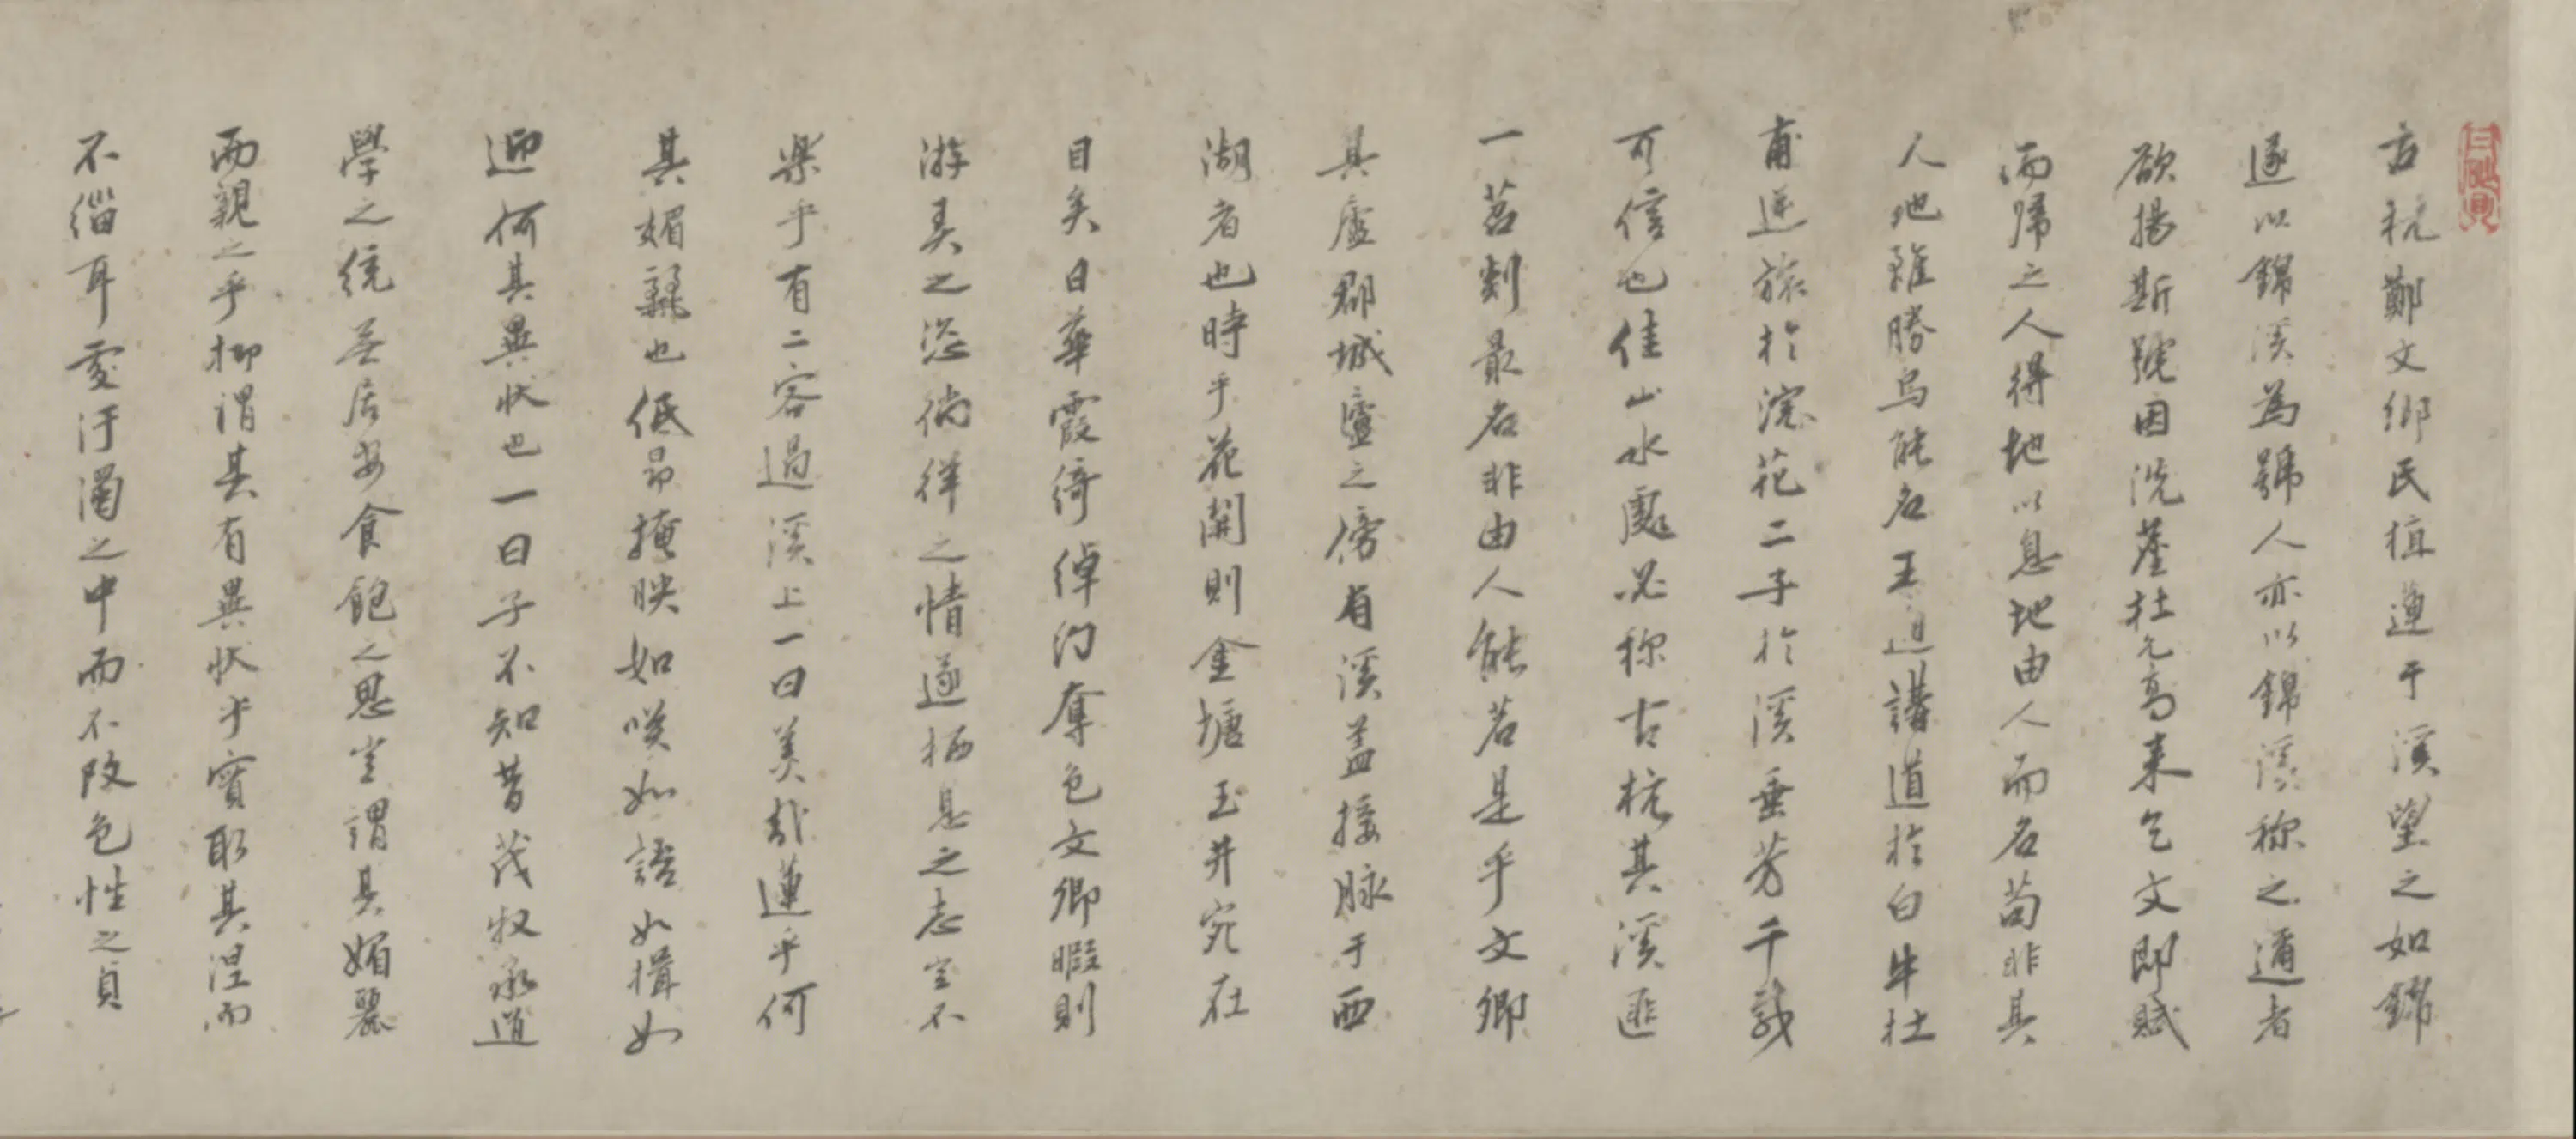 古杭鄭文卿氏植蓮于溪望之如錦
遂以錦溪為號人亦以錦溪称之邇者
欲揚斯號因沈蘭杜元高来乞文即賦
而歸之人得地以息地由人而名苟非其
人地雖勝烏能名王通講道於白牛杜
甫逆旅於浣花二子於溪垂芳千載
可信也佳山水處必称古杭其溪匪
一苕剡最名非由人能若是乎文卿
其廬郡城䕌之傍有溪盖接脉于西
湖者也時乎花開則金塘玉井宛在
目矣日華霞綺綽約奪色文卿暇則
游矣之恣徜徉之情遂栖息之志豈不
樂乎有二客過溪上一曰美哉蓮乎何
其媚麗也低昂掩映如咲如語如揖如
迎何其異状也一曰子不知昔茂叔承道
學之統無居安食飽之思豈謂其媚麗
而親之乎抑謂其有異状乎實取其涅而
不緇耳處汙濁之中而不改色性之貞